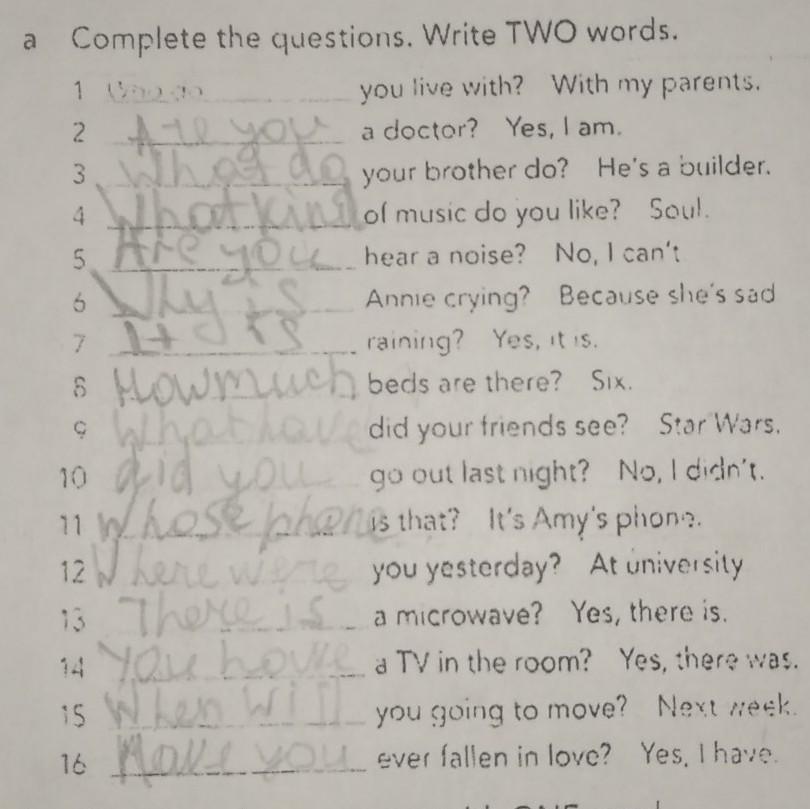 a Complete the questions. Write TWO words.
1 Who do you live with? With my parents.
2 Are you a doctor? Yes, I am.
3 What do your brother do? He's a builder.
4 What kind of music do you like? Soul.
5 Are you hear a noise? No, I can't
6 Why is Annie crying? Because she's sad
7 It is raining? Yes, it is.
8 How much beds are there? Six.
9 What have did your friends see? Star Wars.
10 did you go out last night? No, I didn't.
11 Whose phone is that? It's Amy's phone.
12 Where were you yesterday? At university
13 There is a microwave? Yes, there is.
14 You have a TV in the room? Yes, there was.
15 When will you going to move? Next week.
16 Have you ever fallen in love? Yes, I have.